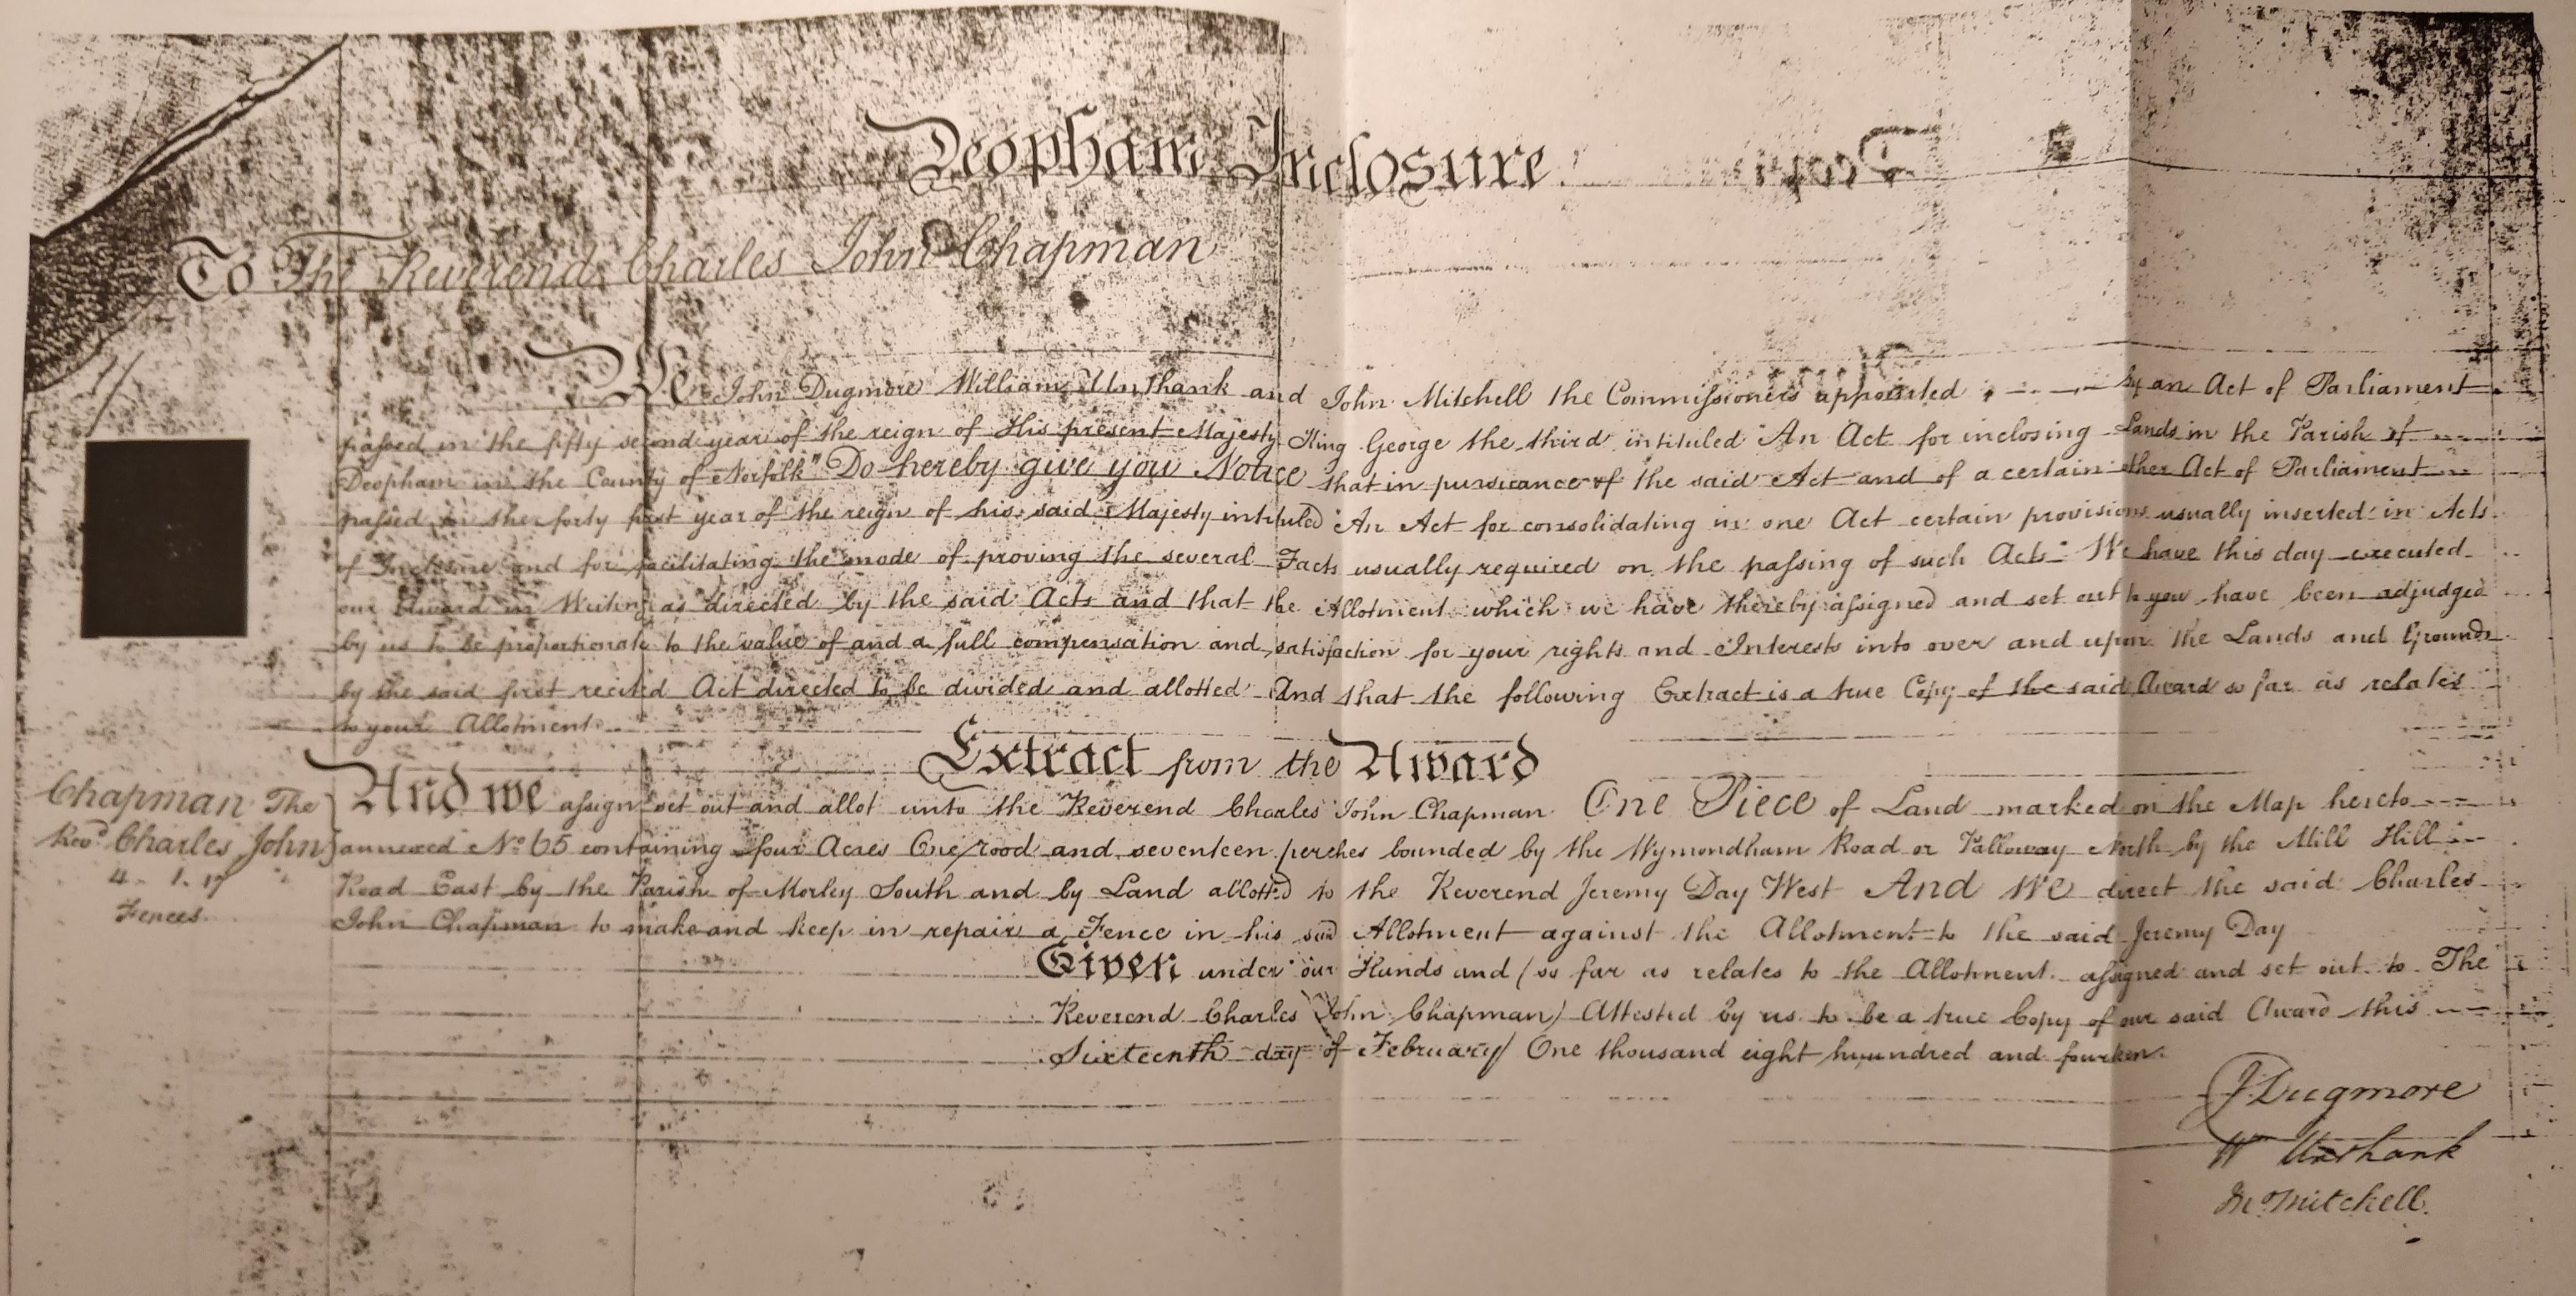 Deopham Inclosure
To The Reverend Charles John Chapman
We John Dugmore William Unthank and John Mitchell the Commissioners appointed by an Act of Parliament
passed in the fifty second year of the reign of His present Majesty King George the third intituled "An Act for inclosing Lands in the Parish of
Deopham in the County of Norfolk" Do hereby give you Notice that in pursuance of the said Act and of a certain other Act of Parliament
passed in the forty first year of the reign of his said Majesty intituled "An Act for consolidating in one Act certain provisions usually inserted in Acts
of Inclosure and for facilitating the mode of proving the several Facts usually required on the passing of such Acts" We have this day executed
our Award in Writing as directed by the said Acts and that the Allotment which we have thereby assigned and set out to you have been adjudged
by us to be proportionate to the value of and a full compensation and satisfaction for your rights and Interests into over and upon the Lands and Grounds
by the said first recited Act directed to be divided and allotted And that the following Extract is a true Copy of the said Award so far as relates
to your Allotment
Extract from the Award
Chapman The
Revd Charles John
4 - 1 - 17
Fences
And we assign set out and allot unto the Reverend Charles John Chapman One Piece of Land marked on the Map hereto
annexed No 65 containing four Acres One rood and seventeen perches bounded by the Wymondham Road or Falloway North by the Mill Hill
Road East by the Parish of Morley South and by Land allotted to the Reverend Jeremy Day West And We direct the said Charles
John Chapman to make and keep in repair a Fence in his said Allotment against the Allotment to the said Jeremy Day
Given under our Hands and (so far as relates to the Allotment assigned and set out to The
Reverend Charles John Chapman) Attested by us to be a true Copy of our said Award this
Sixteenth day of February One thousand eight hundred and fourteen
J Dugmore
W Unthank
Jn Mitchell